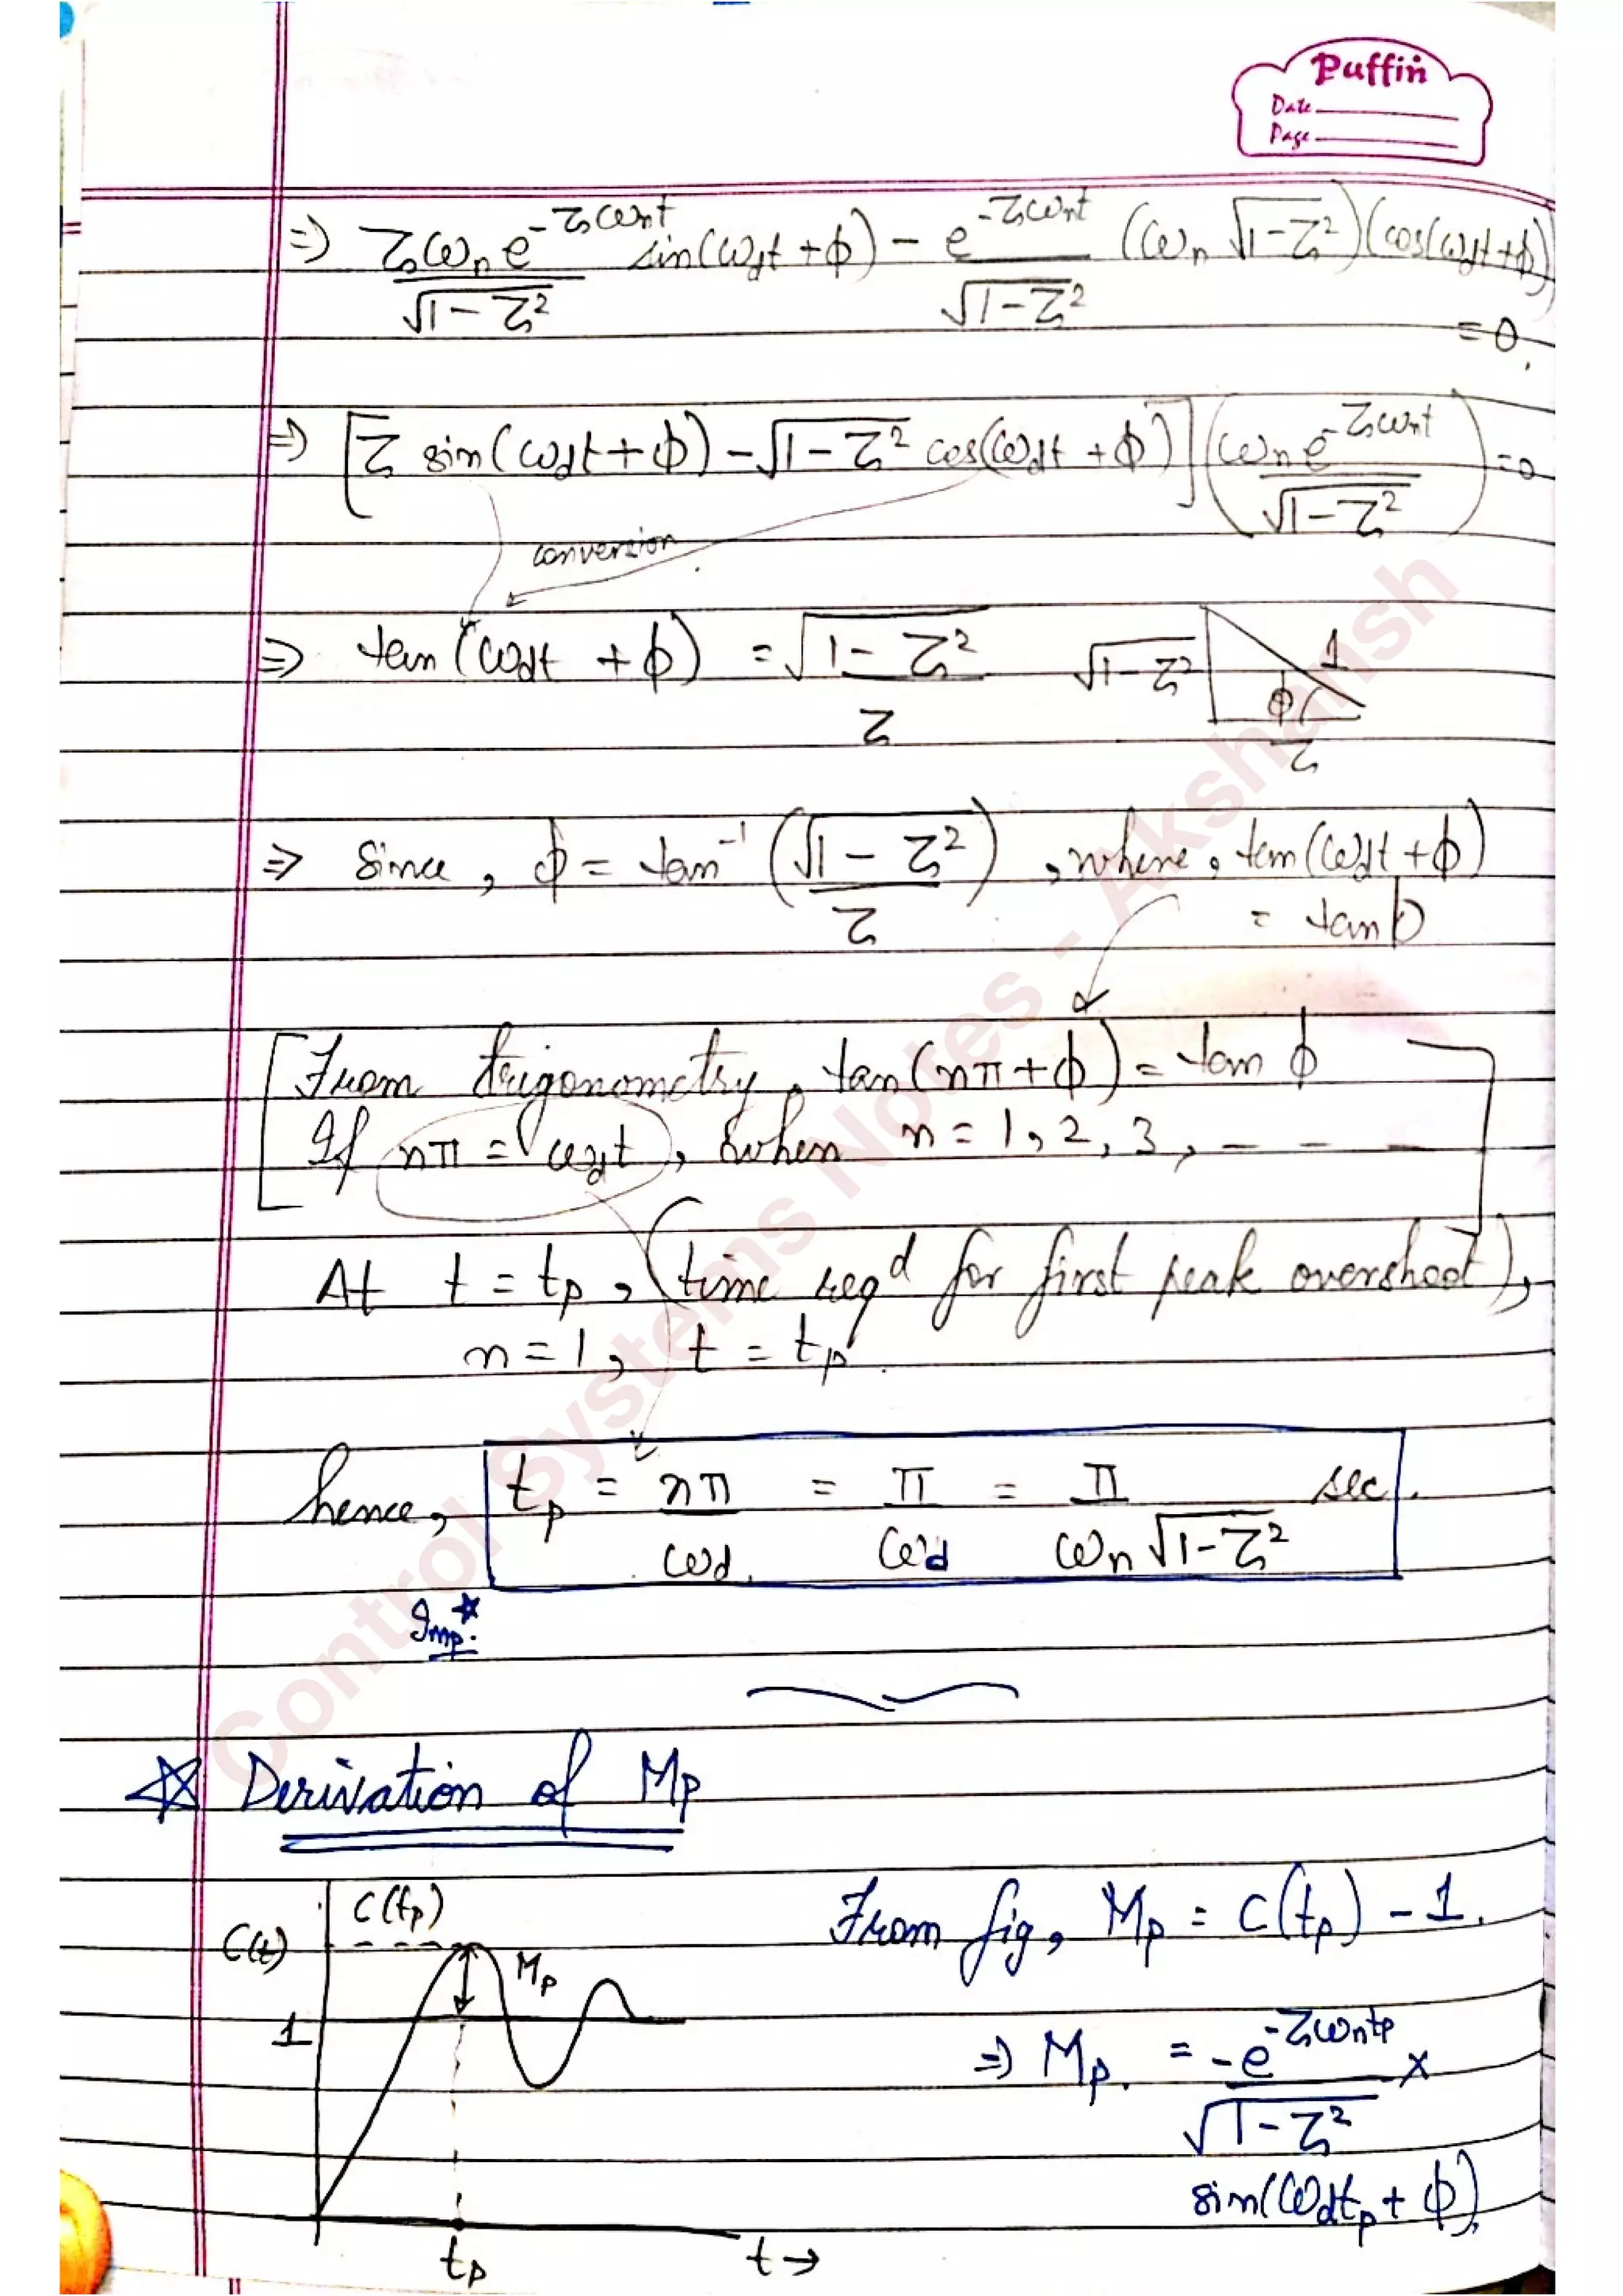 Puffin
Date
Page
⇒ ζωn e^-ζωnt / √1-ζ² sin(ωdt + ϕ) - e^-ζωnt / √1-ζ² (ωn √1-ζ²)(cos(ωdt+ϕ)
= 0.
⇒ [ζ sin(ωdt+ϕ) - √1-ζ² cos(ωdt + ϕ)] (ωn e^-ζωnt / √1-ζ²) = 0
conversion
⇒ tan(ωdt + ϕ) = √1-ζ² / ζ
√1-ζ² 1
ϕ
ζ
⇒ Since, ϕ = tan⁻¹ (√1-ζ² / ζ), where, tan(ωdt+ϕ)
= tanϕ
[From trigonometry, tan(nπ+ϕ) = tan ϕ
If nπ = ωdt, when n = 1, 2, 3, - - -]
At t = tp, (time reqd for first peak overshoot),
n = 1, t = tp.
hence, tp = nπ/ωd = π/ωd = π / ωn √1-ζ² sec.
Imp.
☆ Derivation of Mp
C(tp)
C(t)
Mp
1
tp
t →
From fig, Mp = C(tp) - 1.
⇒ Mp. = -e^-ζωntp / √1-ζ² ×
sin(ωdtp + ϕ).
Control Systems Notes - Akshansh